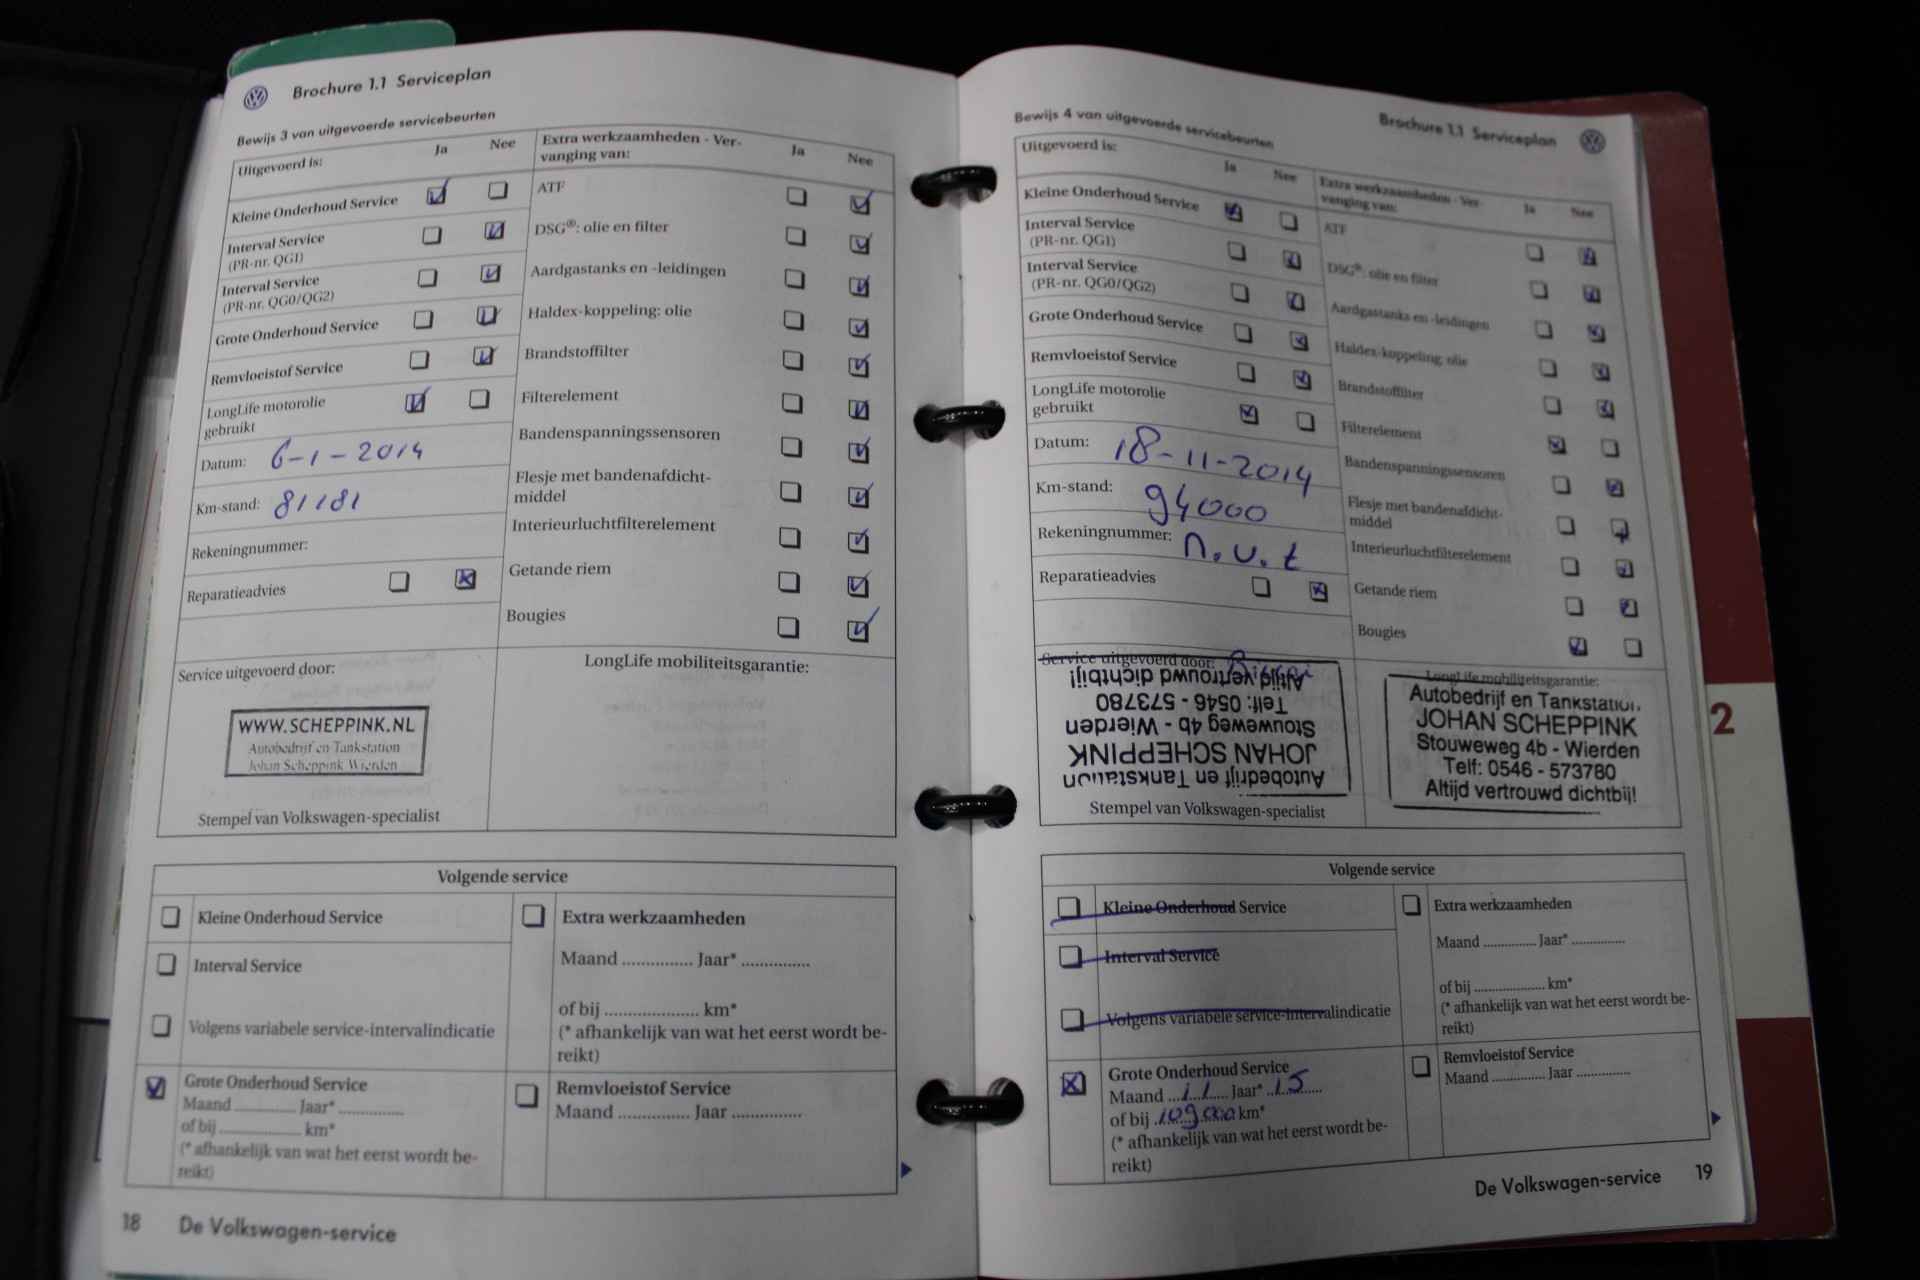 Brochure 1.1 Serviceplan
Bewijs 3 van uitgevoerde servicebeurten
Uitgevoerd is: Ja Nee
Kleine Onderhoud Service
Interval Service
(PR-nr. QG1)
Interval Service
(PR-nr. QG0/QG2)
Grote Onderhoud Service
Remvloeistof Service
LongLife motorolie
gebruikt
Datum: 6-1-2014
Km-stand: 81181
Rekeningnummer:
Reparatieadvies
Extra werkzaamheden - Ver-
vanging van: Ja Nee
ATF
DSG®: olie en filter
Aardgastanks en -leidingen
Haldex-koppeling: olie
Brandstoffilter
Filterelement
Bandenspanningssensoren
Flesje met bandenafdicht-
middel
Interieurluchtfilterelement
Getande riem
Bougies
Service uitgevoerd door:
WWW.SCHEPPINK.NL
Autobedrijf en Tankstation
Johan Scheppink Wierden
Stempel van Volkswagen-specialist
LongLife mobiliteitsgarantie:
Volgende service
Kleine Onderhoud Service
Interval Service
Volgens variabele service-intervalindicatie
Grote Onderhoud Service
Maand ............ Jaar* .............
of bij ................ km*
(* afhankelijk van wat het eerst wordt be-
reikt)
Extra werkzaamheden
Maand .............. Jaar* ..............
of bij ................... km*
(* afhankelijk van wat het eerst wordt be-
reikt)
Remvloeistof Service
Maand .............. Jaar ..............
18 De Volkswagen-service
Brochure 1.1 Serviceplan
Bewijs 4 van uitgevoerde servicebeurten
Uitgevoerd is: Ja Nee
Kleine Onderhoud Service
Interval Service
(PR-nr. QG1)
Interval Service
(PR-nr. QG0/QG2)
Grote Onderhoud Service
Remvloeistof Service
LongLife motorolie
gebruikt
Datum: 18-11-2014
Km-stand: 94000
Rekeningnummer: n.v.t
Reparatieadvies
Extra werkzaamheden - Ver-
vanging van: Ja Nee
ATF
DSG®: olie en filter
Aardgastanks en -leidingen
Haldex-koppeling: olie
Brandstoffilter
Filterelement
Bandenspanningssensoren
Flesje met bandenafdicht-
middel
Interieurluchtfilterelement
Getande riem
Bougies
Service uitgevoerd door:
Autobedrijf en Tankstation
JOHAN SCHEPPINK
Stouweweg 4b - Wierden
Telf: 0546 - 573780
Altijd vertrouwd dichtbij!
Stempel van Volkswagen-specialist
LongLife mobiliteitsgarantie:
Autobedrijf en Tankstation
JOHAN SCHEPPINK
Stouweweg 4b - Wierden
Telf: 0546 - 573780
Altijd vertrouwd dichtbij!
2
Volgende service
Kleine Onderhoud Service
Interval Service
Volgens variabele service-intervalindicatie
Grote Onderhoud Service
Maand 11 Jaar* 15
of bij 109000 km*
(* afhankelijk van wat het eerst wordt be-
reikt)
Extra werkzaamheden
Maand .............. Jaar* ..............
of bij ................... km*
(* afhankelijk van wat het eerst wordt be-
reikt)
Remvloeistof Service
Maand .............. Jaar ..............
De Volkswagen-service 19